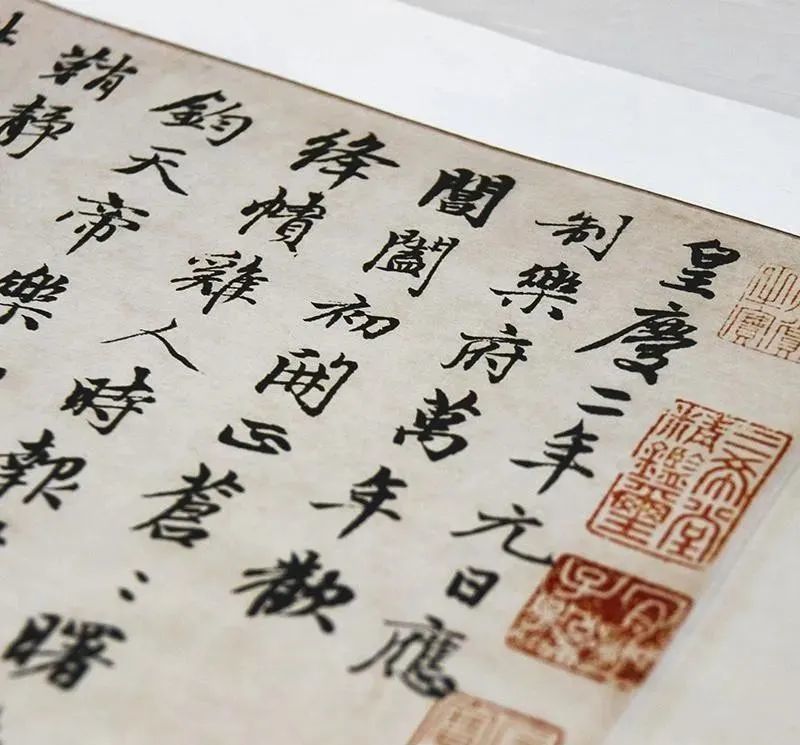 皇慶二年元日應
制樂府萬年歡
閶闔初開正蒼〻曙
絳幘雞人時報
鈞天帝樂
鞘靜
三希堂精鑑璽
宜子孫